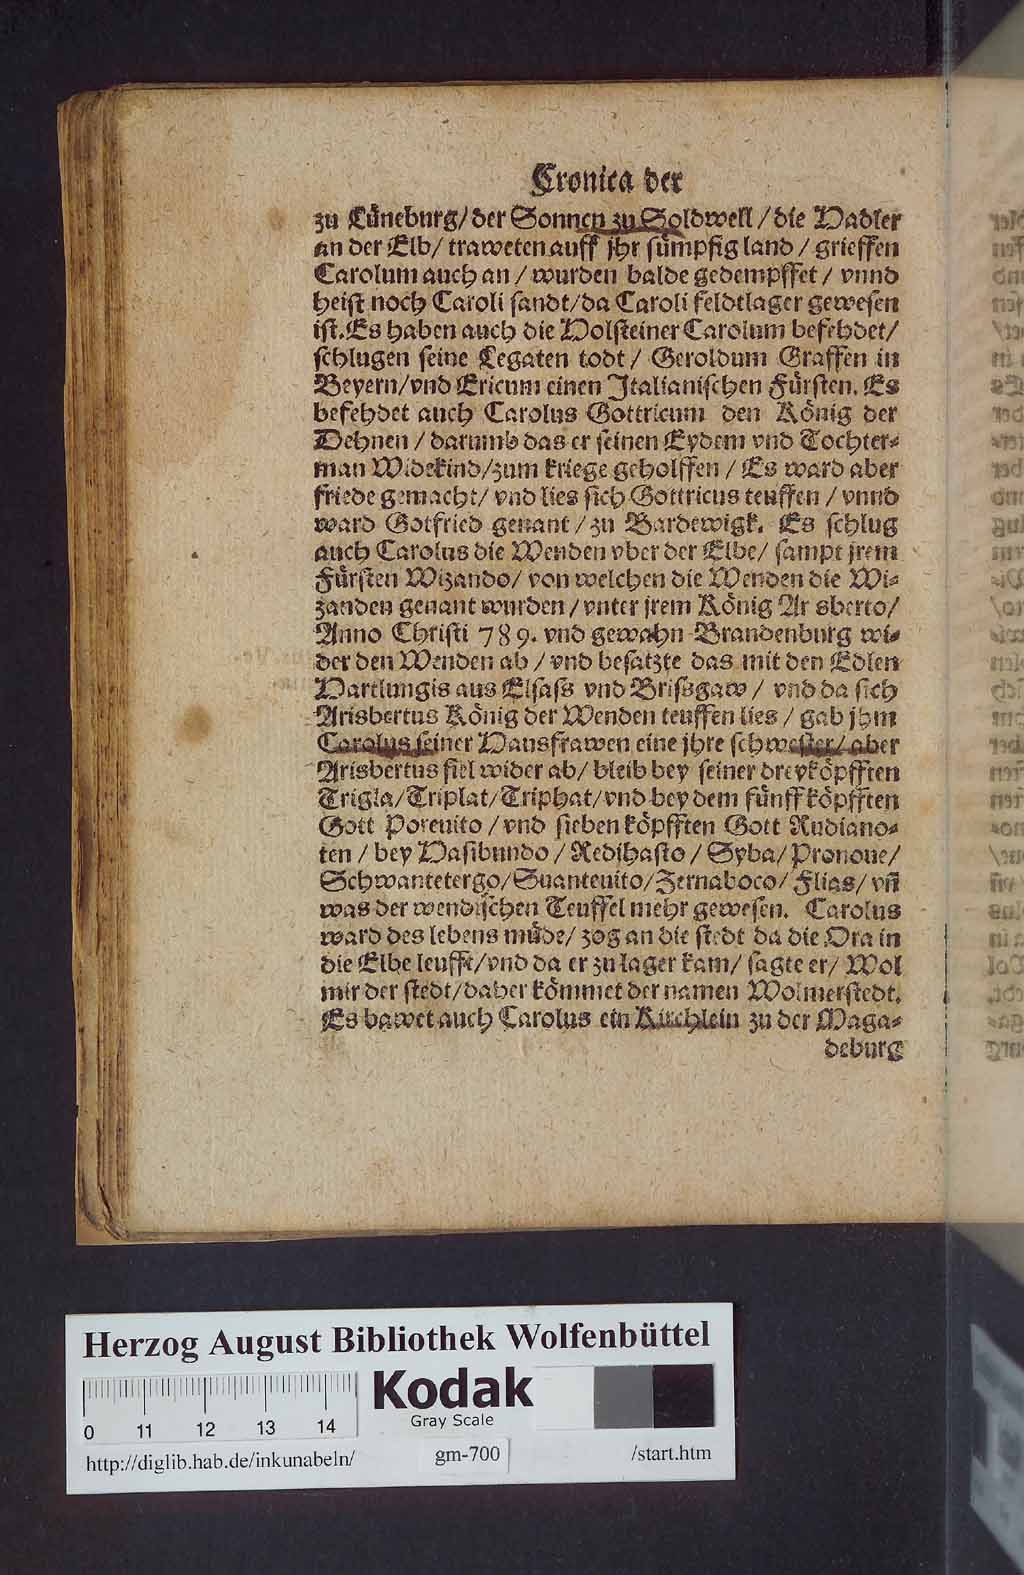 Cronica der
zu Lüneburg/ der Sonnen zu Soldwell / die Hadler
an der Elb/ traweten auff jhr sümpfig land / grieffen
Carolum auch an / wurden balde gedempffet / vnnd
heist noch Caroli sandt/da Caroli feldtlager gewesen
ist. Es haben auch die Holsteiner Carolum befehdet/
schlugen seine Legaten todt / Geroldum Graffen in
Beyern/vnd Ericum einen Italianischen Fürsten. Es
befehdet auch Carolus Gottricum den König der
Dehnen / darumb das er seinen Eydem vnd Tochter-
man Widekind/zum kriege geholffen / Es ward aber
friede gemacht/ vnd lies sich Gottricus teuffen / vnnd
ward Gotfried genant / zu Bardewigk. Es schlug
auch Carolus die Wenden vber der Elbe/ sampt jrem
Fürsten Wizando/ von welchen die Wenden die Wi-
zanden genant wurden / vnter jrem König Arisberto/
Anno Christi 789. vnd gewahn Brandenburg wi-
der den Wenden ab / vnd besatzte das mit den Edlen
Hartlungis aus Elsass vnd Brissgaw / vnd da sich
Arisbertus König der Wenden teuffen lies / gab jhm
Carolus seiner Hausfrawen eine jhre schwester/ aber
Arisbertus fiel wider ab/ bleib bey seiner dreyköpfften
Trigla/Triplat/Triphat/vnd bey dem fünff köpfften
Gott Poreuito / vnd sieben köpfften Gott Rudiano-
ten / bey Hasibundo / Redihasto / Syba/ Pronoue/
Schwantetergo/Suanteuito/Zernaboco/ Flias/ vñ
was der wendischen Teuffel mehr gewesen. Carolus
ward des lebens müde/ zog an die stedt da die Ora in
die Elbe leufft/vnd da er zu lager kam/ sagte er/ Wol
mir der stedt/daher kömmet der namen Wolmerstedt.
Es bawet auch Carolus ein Kirchlein zu der Maga-
deburg
Herzog August Bibliothek Wolfenbüttel
0 11 12 13 14
Kodak
Gray Scale
http://diglib.hab.de/inkunabeln/ gm-700 /start.htm